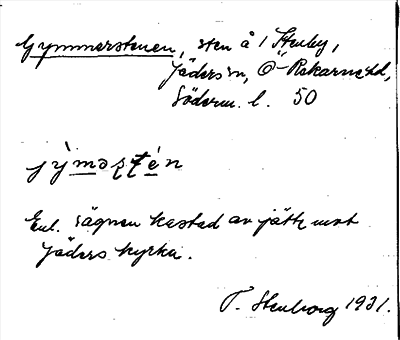 Gymmerstenen, sten å 1 Stenby,
Jäders sn, Ö-Rekarne hd,
Söderm. l. 50
jỳmǝʂʈén
Enl. sägnen kastad av jätte mot
Jäders kyrka.
T. Stenborg 1931.